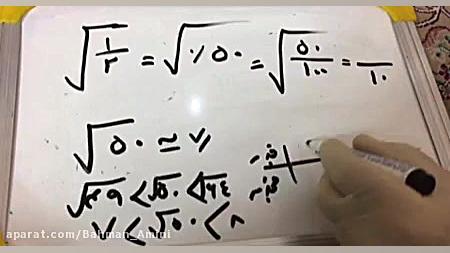 √۱/۲ = √۰/۵۰ = √۵۰/۱۰۰ = /۱۰
√۵۰ ≃ ۷/
√۴۹ < √۵۰ < √۶۴
۷ < √۵۰ < ۸
aparat.com/Bahman_Amini